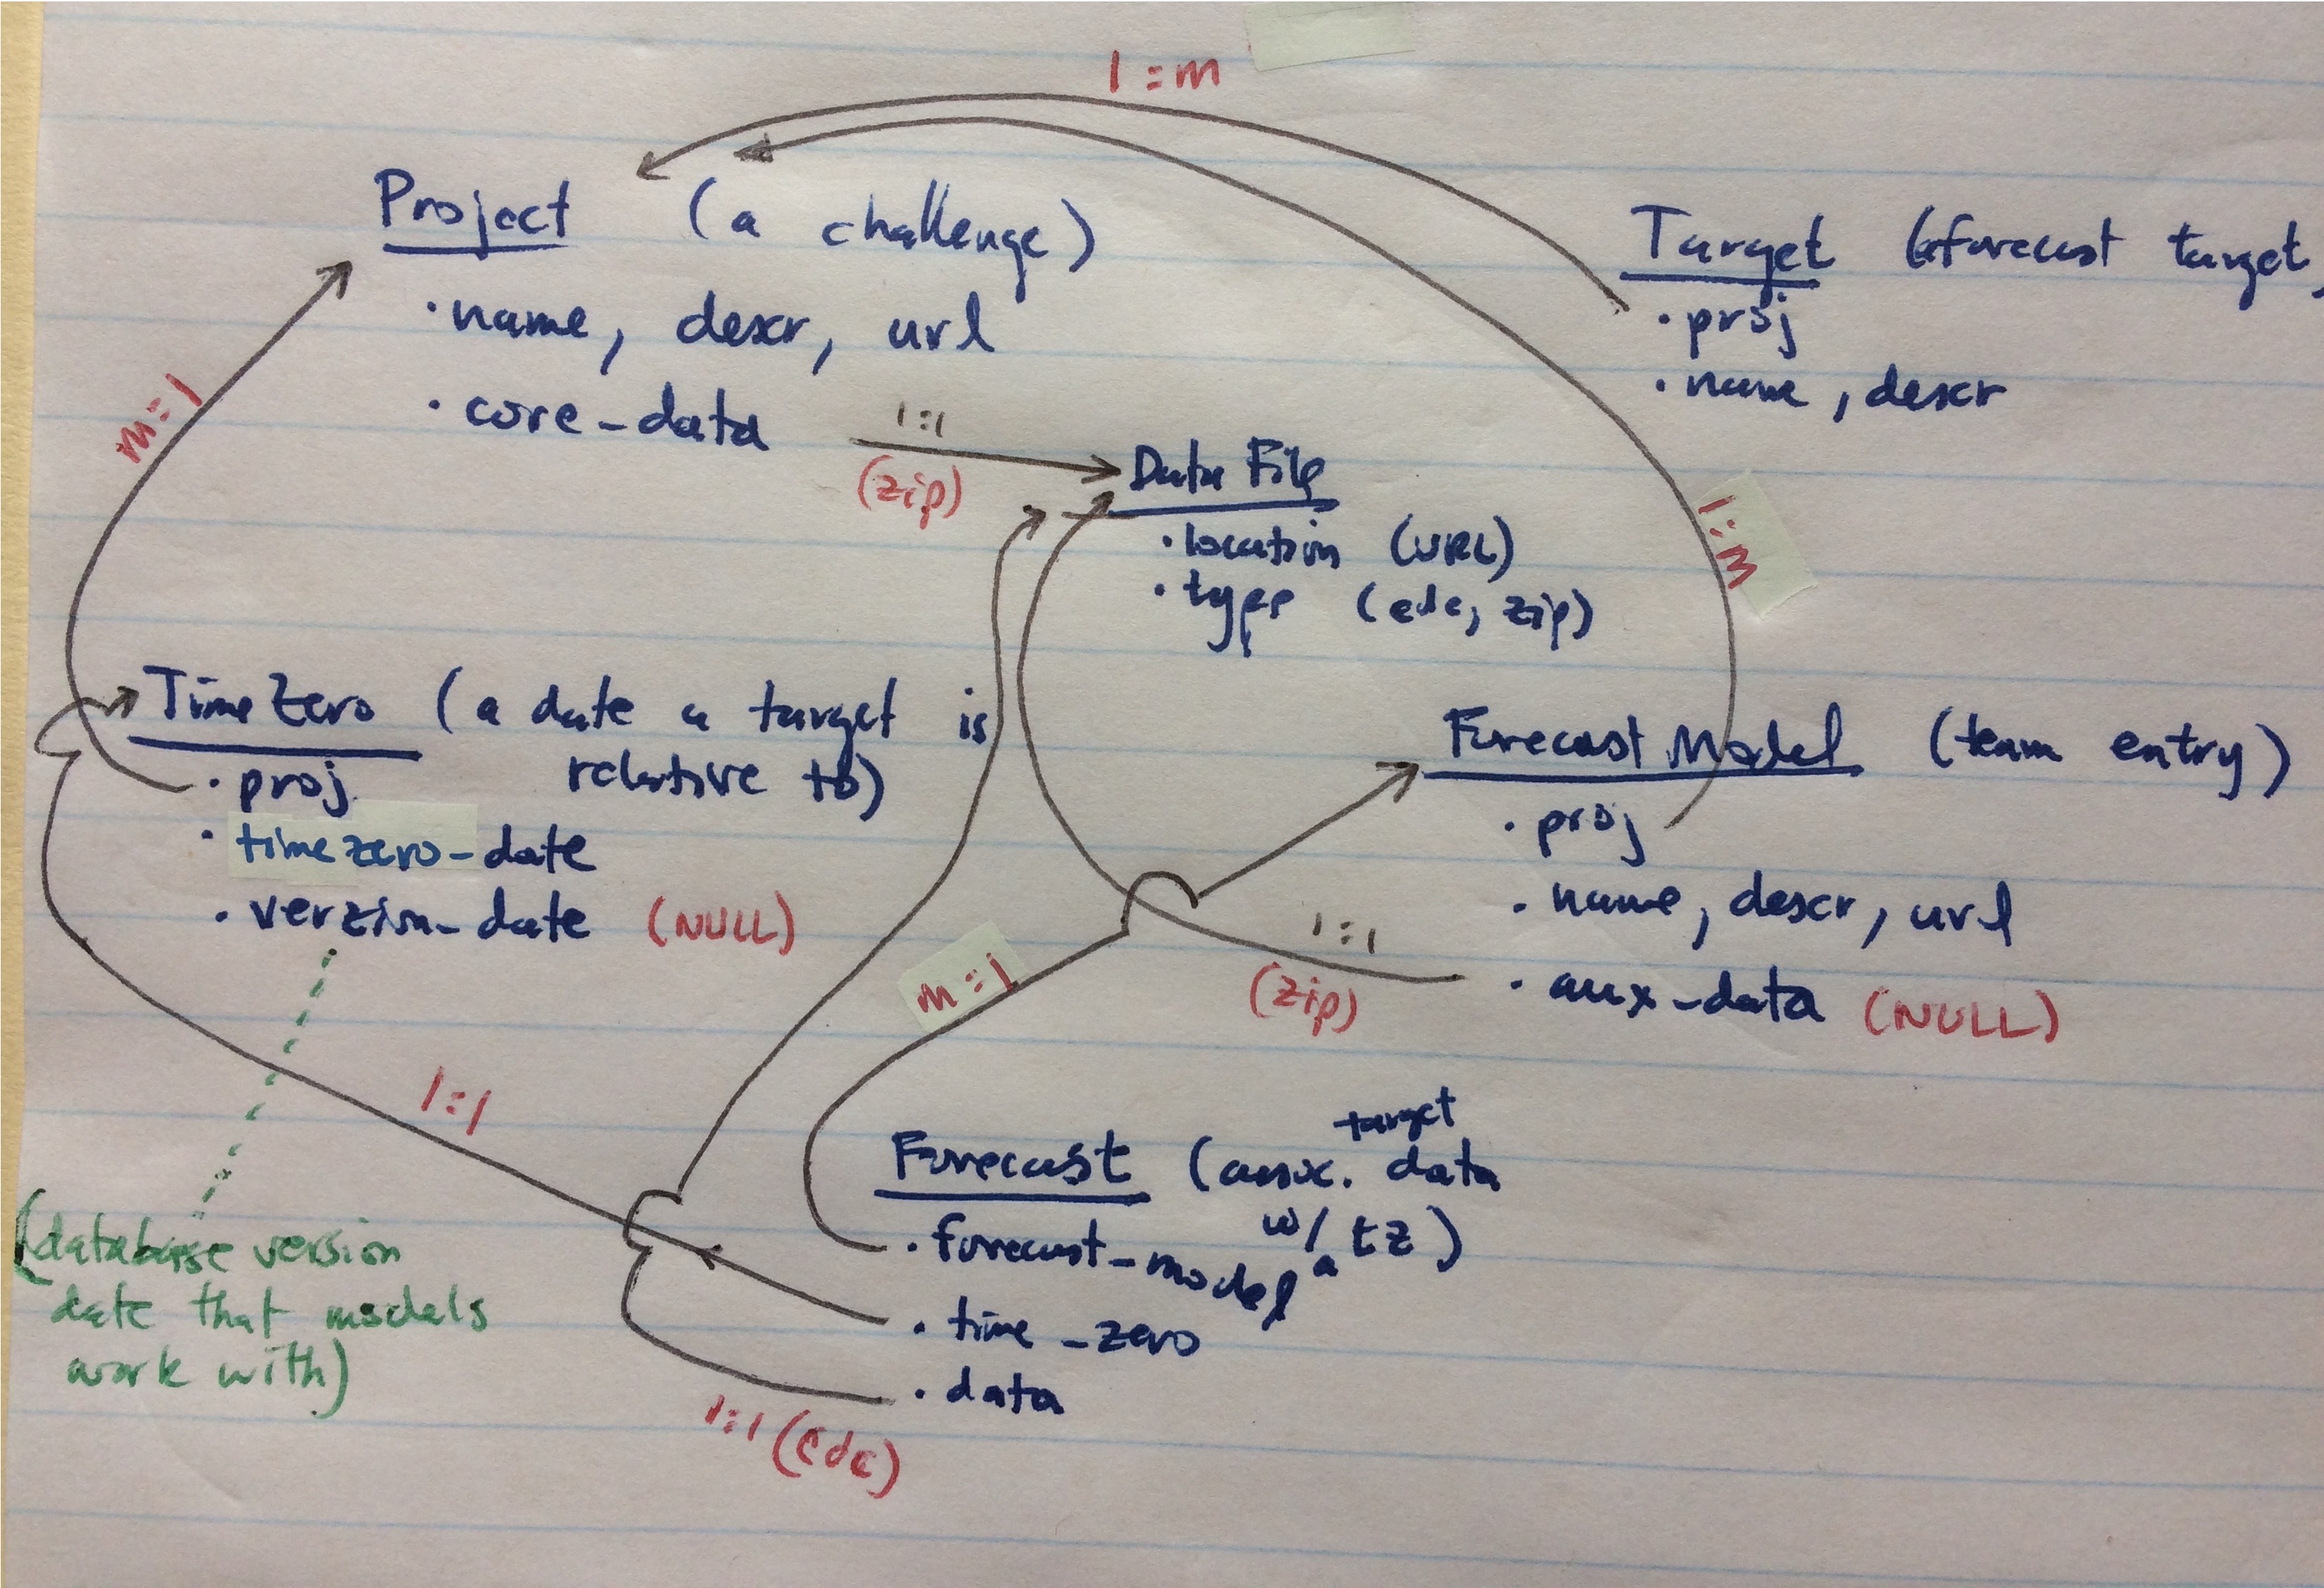 1:m
Project (a challenge)
· name, descr, url
· core-data
1:1
(zip)
Target (a forecast target)
· proj
· name, descr
m:1
Data File
· location (URL)
· type (cdc, zip)
1:m
TimeZero (a date a target is
relative to)
· proj
· timezero-date
· verzion-date (NULL)
Forecast Model (team entry)
· proj
· name, descr, url
· aux-data (NULL)
1:1
(zip)
m:1
1:1
Forecast (assoc. target data
w/ a tz)
· forecast-model
· time-zero
· data
1:1 (cdc)
(database version
date that models
work with)